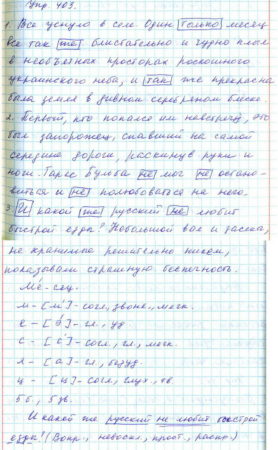 Упр. 403.
1. Все уснуло в селе. Один только месяц
все так же блистательно и чудно плыл
в необъятных просторах роскошного
украинского неба, и так же прекрасна
была земля в дивном серебряном блеске.
2. Первый, кто попался им навстречу, это
был запорожец, спавший на самой
середине дороги, раскинув руки и
ноги. Тарас Бульба не мог не остано-
виться и не полюбоваться на него.
3. И какой же русский не любит
быстрой езды? Небольшой вал и засека,
не хранимые решительно никем,
показывали страшную беспечность.
Ме-сяц.
м - [м'] - согл., звонк., мягк.
е - [э́] - гл., уд.
с - [с'] - согл., гл., мягк.
я - [а] - гл., безуд.
ц - [ц] - согл., глух., тв.
5 б., 5 зв.
И какой же русский не любит быстрой
езды? (Вопр., невоскл., прост., распр.)